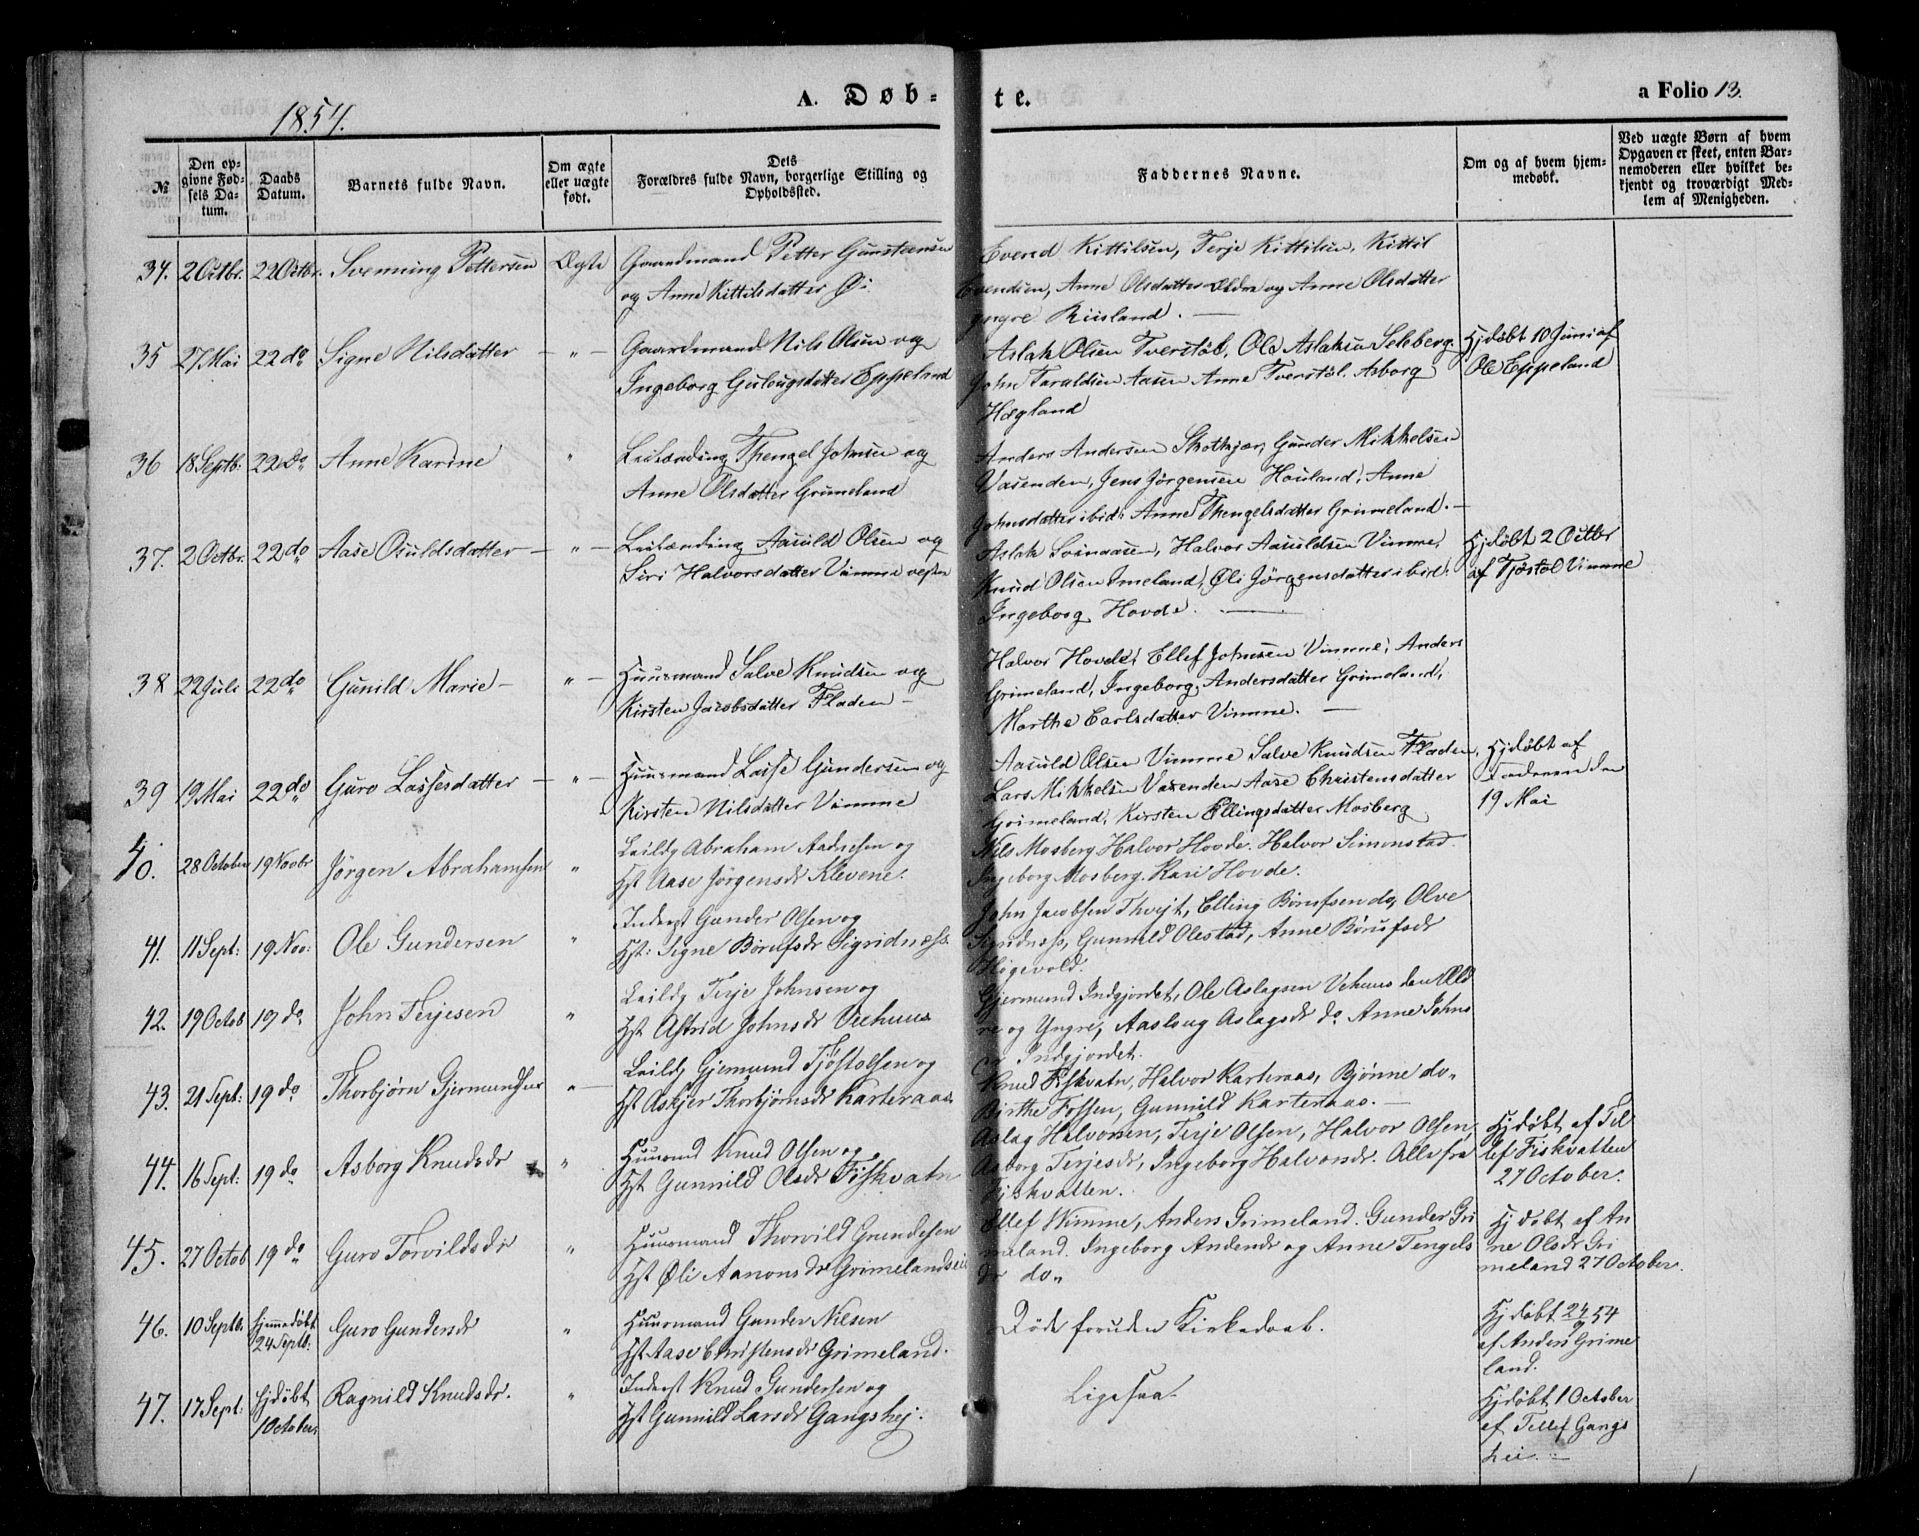 1854.
A. Døb-
te.
a Folio 13.
№
Den op-
givne Fød-
sels Da-
tum.
Daabs
Datum.
Barnets fulde Navn.
Om ægte
eller uægte
født.
Dets
Forældres fulde Navn, borgerlige Stilling og
Opholdssted.
Faddernes Navne.
Om og af hvem hjem-
medøbt.
Ved uægte Børn af hvem
Opgaven er skeet, enten Bar-
nemoderen eller hvilket be-
kjendt og troværdigt Med-
lem af Menigheden.
34. 2 Octbr. 22 Octbr. Svenning Pettersen Ægte
Gaardmand Petter Gunstensen
og Anne Kittilsdatter Øi
Evend Kittilsen, Terje Kittilsen, Kittil
Evendsen, Anne Olsdatter Ældre og Anne Olsdatter
yngre Riisland.
35 27 Mai 22 do Signe Nilsdatter – " –
Gaardmand Nils Olsen og
Ingeborg Gulougsdatter Eppeland
Aslak Olsen Tverstøl, Ole Aslaksen Selsberg
John Taraldsen Aasen Anne Tverstøl. Asborg
Hægland
Hjdøbt 10 Juni af
Ole Eppeland
36 18 Septb. 22 do Anne Karine "
Leilænding Thengel Johnsen og
Anne Olsdatter Grimeland
Anders Andersen Skotkjær, Gunder Mikkelsen
Vasenden, Jens Jörgensen Houland, Anne
Johnsdatter ibid: Anne Thengelsdatter Grimeland.
37. 2 Octbr. 22 do Aase Osuldsdatter – " –
Leilænding Aasuld Olsen og
Siri Halvorsdatter Vimme vestre
Aslak Svinaasen, Halvor Aasuldsen Vimme,
Knud Olsen Imeland, Øli Jörgensdatter ibid:
Ingeborg Hovde.
Hjdøbt 2 Octbr
af Tjøstol Vimme
38 22 Juli 22 do Gunild Marie – " –
Huusmand Salve Knudsen og
Kirsten Jacobsdatter Fladen –
Halvor Hovde, Ellef Johnsen Vimme, Anders
Grimeland, Ingeborg Andersdatter Grimeland,
Marthe Carlsdatter Vimme. –
39 19 Mai 22 do Guro Lassesdatter – " –
Huusmand Lasse Gundersen og
Kirsten Nilsdatter Vimme
Aasuld Olsen Vimme Salve Knudsen Fladen,
Lars Mikkelsen Vasenden Aase Christensdatter
Grimeland, Kirsten Ellingsdatter Mosberg
Hjdøbt af
Faderen den
19 Mai
40. 28 October 19 Novbr Jörgen Abrahamsen "
Leildg Abraham Aadnesen og
Hst Aase Jörgensdr Klevene.
Nils Mosberg Halvor Hovde. Halvor Simonstad
Ingeborg Mosberg. Kari Hovde.
41. 11 Sept: 19 Nov: Ole Gundersen "
Inderst Gunder Olsen og
Hst: Signe Börufsdr Sigridnæss.
John Jacobsen Thvejt, Elling Börufsen do, Olve
Sigridnæss, Gunnild Olestad, Anne Börufsdr
Høgevold.
42. 19 Octob 19 do John Terjesen "
Leildg Terje Johnsen og
Hst Astrid Johnsdr Veehuus
Gjermund Indgjordet, Ole Aslagsen Vehuus den Æld
re og Yngre, Aaslaug Aslagsdr do. Anne Johns
dr Indgjordet.
43. 21 Sept: 19 do Thorbjørn Gjermundsen "
Leildg Gjermund Tjöstolsen og
Hst Askjer Thorbjörnsdr Karteraas
Knud Fiskvatn, Halvor Karteraas, Bjönne do,
Birthe Fossen, Gunnild Karteraas. –
44. 16 Sept: 19 do Asborg Knudsdr "
Huusmd Knud Olsen og
Hst Gunnild Olsdr Fiskvatn
Aslag Halvorsen, Terje Olsen, Halvor Olsen,
Asborg Terjesdr, Ingeborg Halvorsdr. Alle fra
Fiskvatten.
Hjdøbt af Tel
lef Fiskvatten
27 October.
45. 27 Octob 19 do Guro Torvildsdr "
Huusmand Thorvild Gundersen
Hst Øli Aanonsdr Grimelandseie
Ellef Wimme, Anders Grimeland. Gunder Gri
meland. Ingeborg Andersdr og Anne Tengels
dr do "
Hjdøbt af An
ne Olsdr Gri
meland 27 October.
46. 10 Septb. hjemmedøbt
24 Septb: Guro Gundersdr "
Huusmand Gunder Nilsen
Hst Aase Christensdr Grimeland.
Døde foruden Kirkedaab.
Hjdøbt 24/9 54
af Anders Grime
land.
47. 17 Sept: hjdøbt
1 October. Ragnild Knudsdr. "
Inderst Knud Gundersen og
Hst Gunnild Larsdr Gangshej.
Ligesaa.
Hjdøbt 1 October
af Tellef Gangs
hei. –